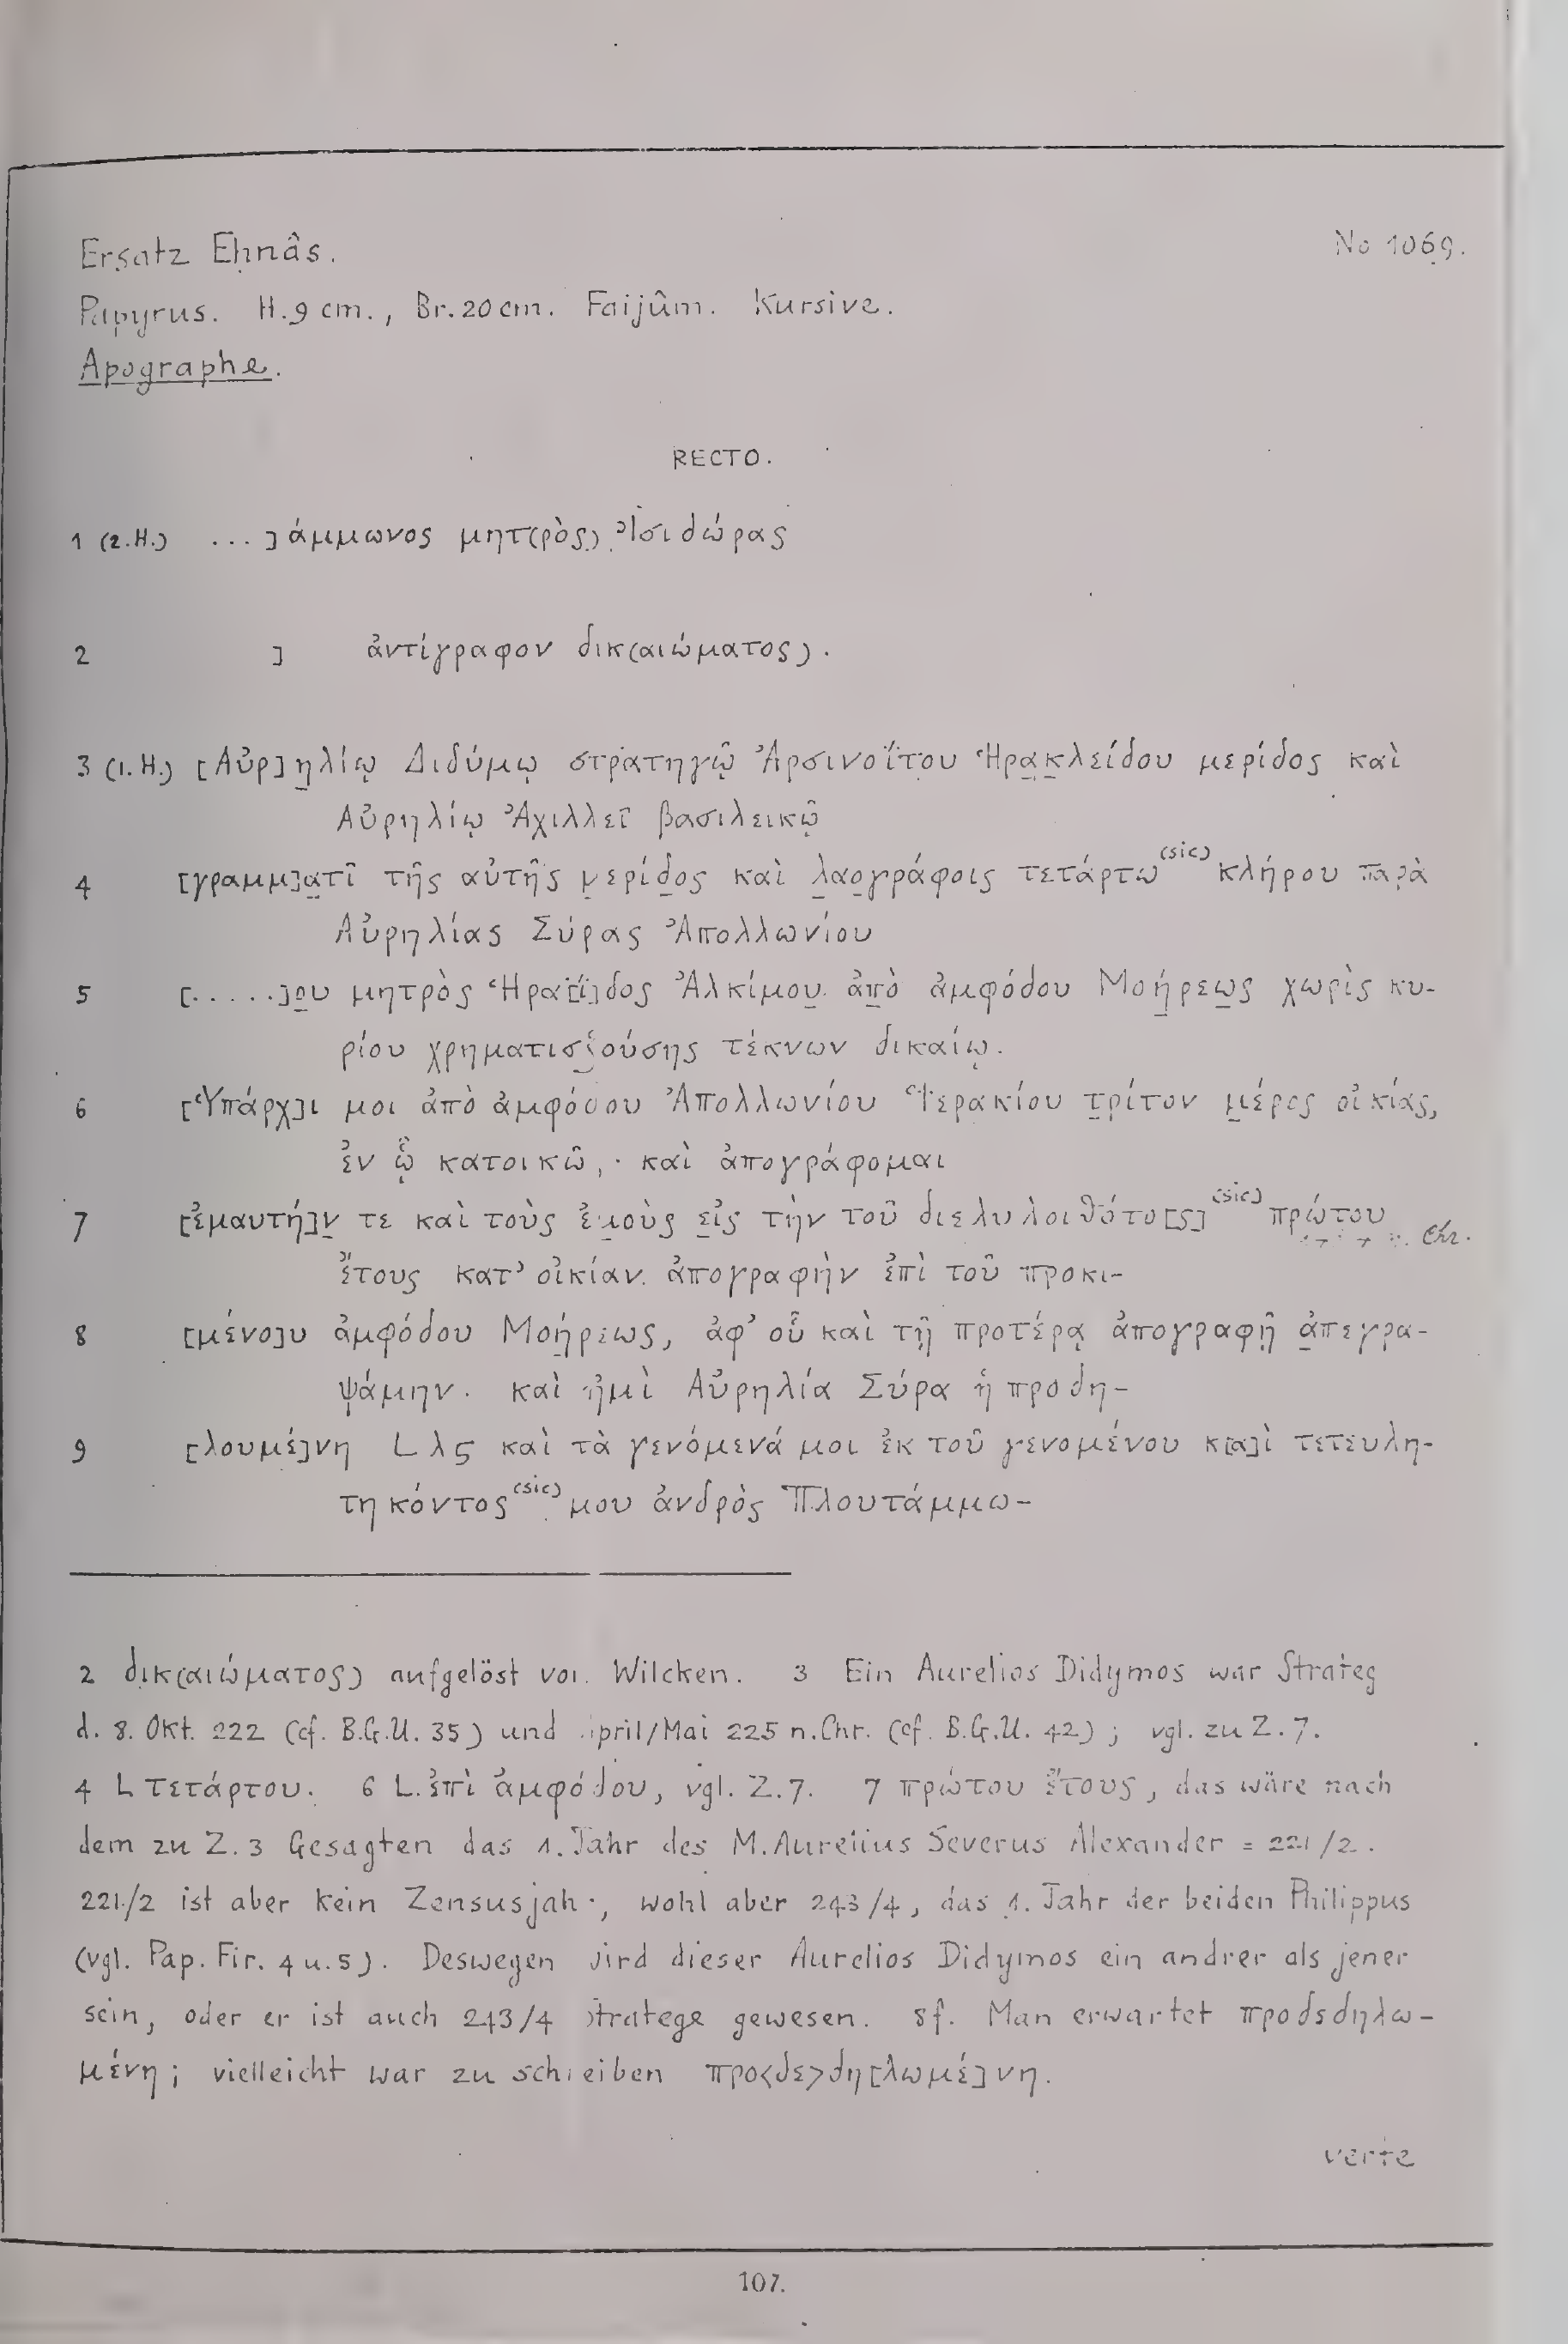 Ersatz Ehnâs.
No 1069.
Papyrus. H. 9 cm., Br. 20 cm. Faijûm. Kursive.
Apographe.
RECTO.
1 (2. H.) ...]άμμωνος μητ(ρὸς) Ἰσιδώρας
2 ] ἀντίγραφον δικ(αιώματος).
3 (1. H.) [Αὐρ]η̣λίῳ Διδύμῳ στρατηγῷ Ἀρσινοΐτου Ἡρα̣κ̣λείδου μερίδος καὶ
Αὐρηλίῳ Ἀχιλλεῖ βασιλεικῷ
4 [γραμμ]α̣τῖ τῆς αὐτῆς μ̣ερίδ̣ος καὶ λ̣αο̣γράφοις τετάρτω (sic) κλήρου παρὰ
Αὐρηλίας Σύρας Ἀπολλωνίου
5 [.....]ο̣υ μητρὸς Ἡρα[ΐ]δος Ἀλκίμου̣ ἀπ̣ὸ ἀμφόδου Μοή̣ρεω̣ς χωρὶς κυ-
ρίου χρηματισζούσης τέκνων δικαίῳ.
6 [Ὑπάρχ]ι μοι ἀπὸ ἀμφόδου Ἀπολλωνίου Ἱερακίου τ̣ρίτον μ̣έρος οἰκίας,
ἐν ᾧ κατοικῶ, καὶ ἀπογράφομαι
7 [ἐμαυτή]ν̣ τε καὶ τοὺς ἐμ̣οὺς ε̣ἰς τὴν τοῦ διελυλοιθότο[ς] (sic) πρώτου
Chr.
ἔτους κατ' οἰκίαν ἀπογραφὴν ἐπὶ τοῦ προκι-
8 [μένο]υ ἀμφόδου Μοή̣ρεως, ἀφ' οὗ καὶ τῇ προτέρᾳ ἀπογραφῇ ἀ̣πεγρα-
ψάμην. καὶ ἠμὶ Αὐρηλία Σύρα ἡ προδη-
9 [λουμέ]νη L λς καὶ τὰ γενόμενά μοι ἐκ τοῦ γενομένου κ[α]ὶ τετευλη-
τηκόντος (sic) μου ἀνδρὸς Πλουτάμμω-
2 δικ(αιώματος) aufgelöst von Wilcken. 3 Ein Aurelios Didymos war Strateg
d. 8. Okt. 222 (cf. B.G.U. 35) und April/Mai 225 n.Chr. (cf. B.G.U. 42); vgl. zu Z. 7.
4 L τετάρτου. 6 L. ἐπὶ ἀμφόδου, vgl. Z. 7. 7 πρώτου ἔτους, das wäre nach
dem zu Z. 3 Gesagten das 1. Jahr des M. Aurelius Severus Alexander = 221/2.
221/2 ist aber kein Zensusjahr, wohl aber 243/4, das 1. Jahr der beiden Philippus
(vgl. Pap. Fir. 4 u. 5). Deswegen wird dieser Aurelios Didymos ein andrer als jener
sein, oder er ist auch 243/4 Stratege gewesen. 8f. Man erwartet προδεδηλω-
μένη; vielleicht war zu schreiben προ<δε>δη[λωμέ]νη.
verte
107.